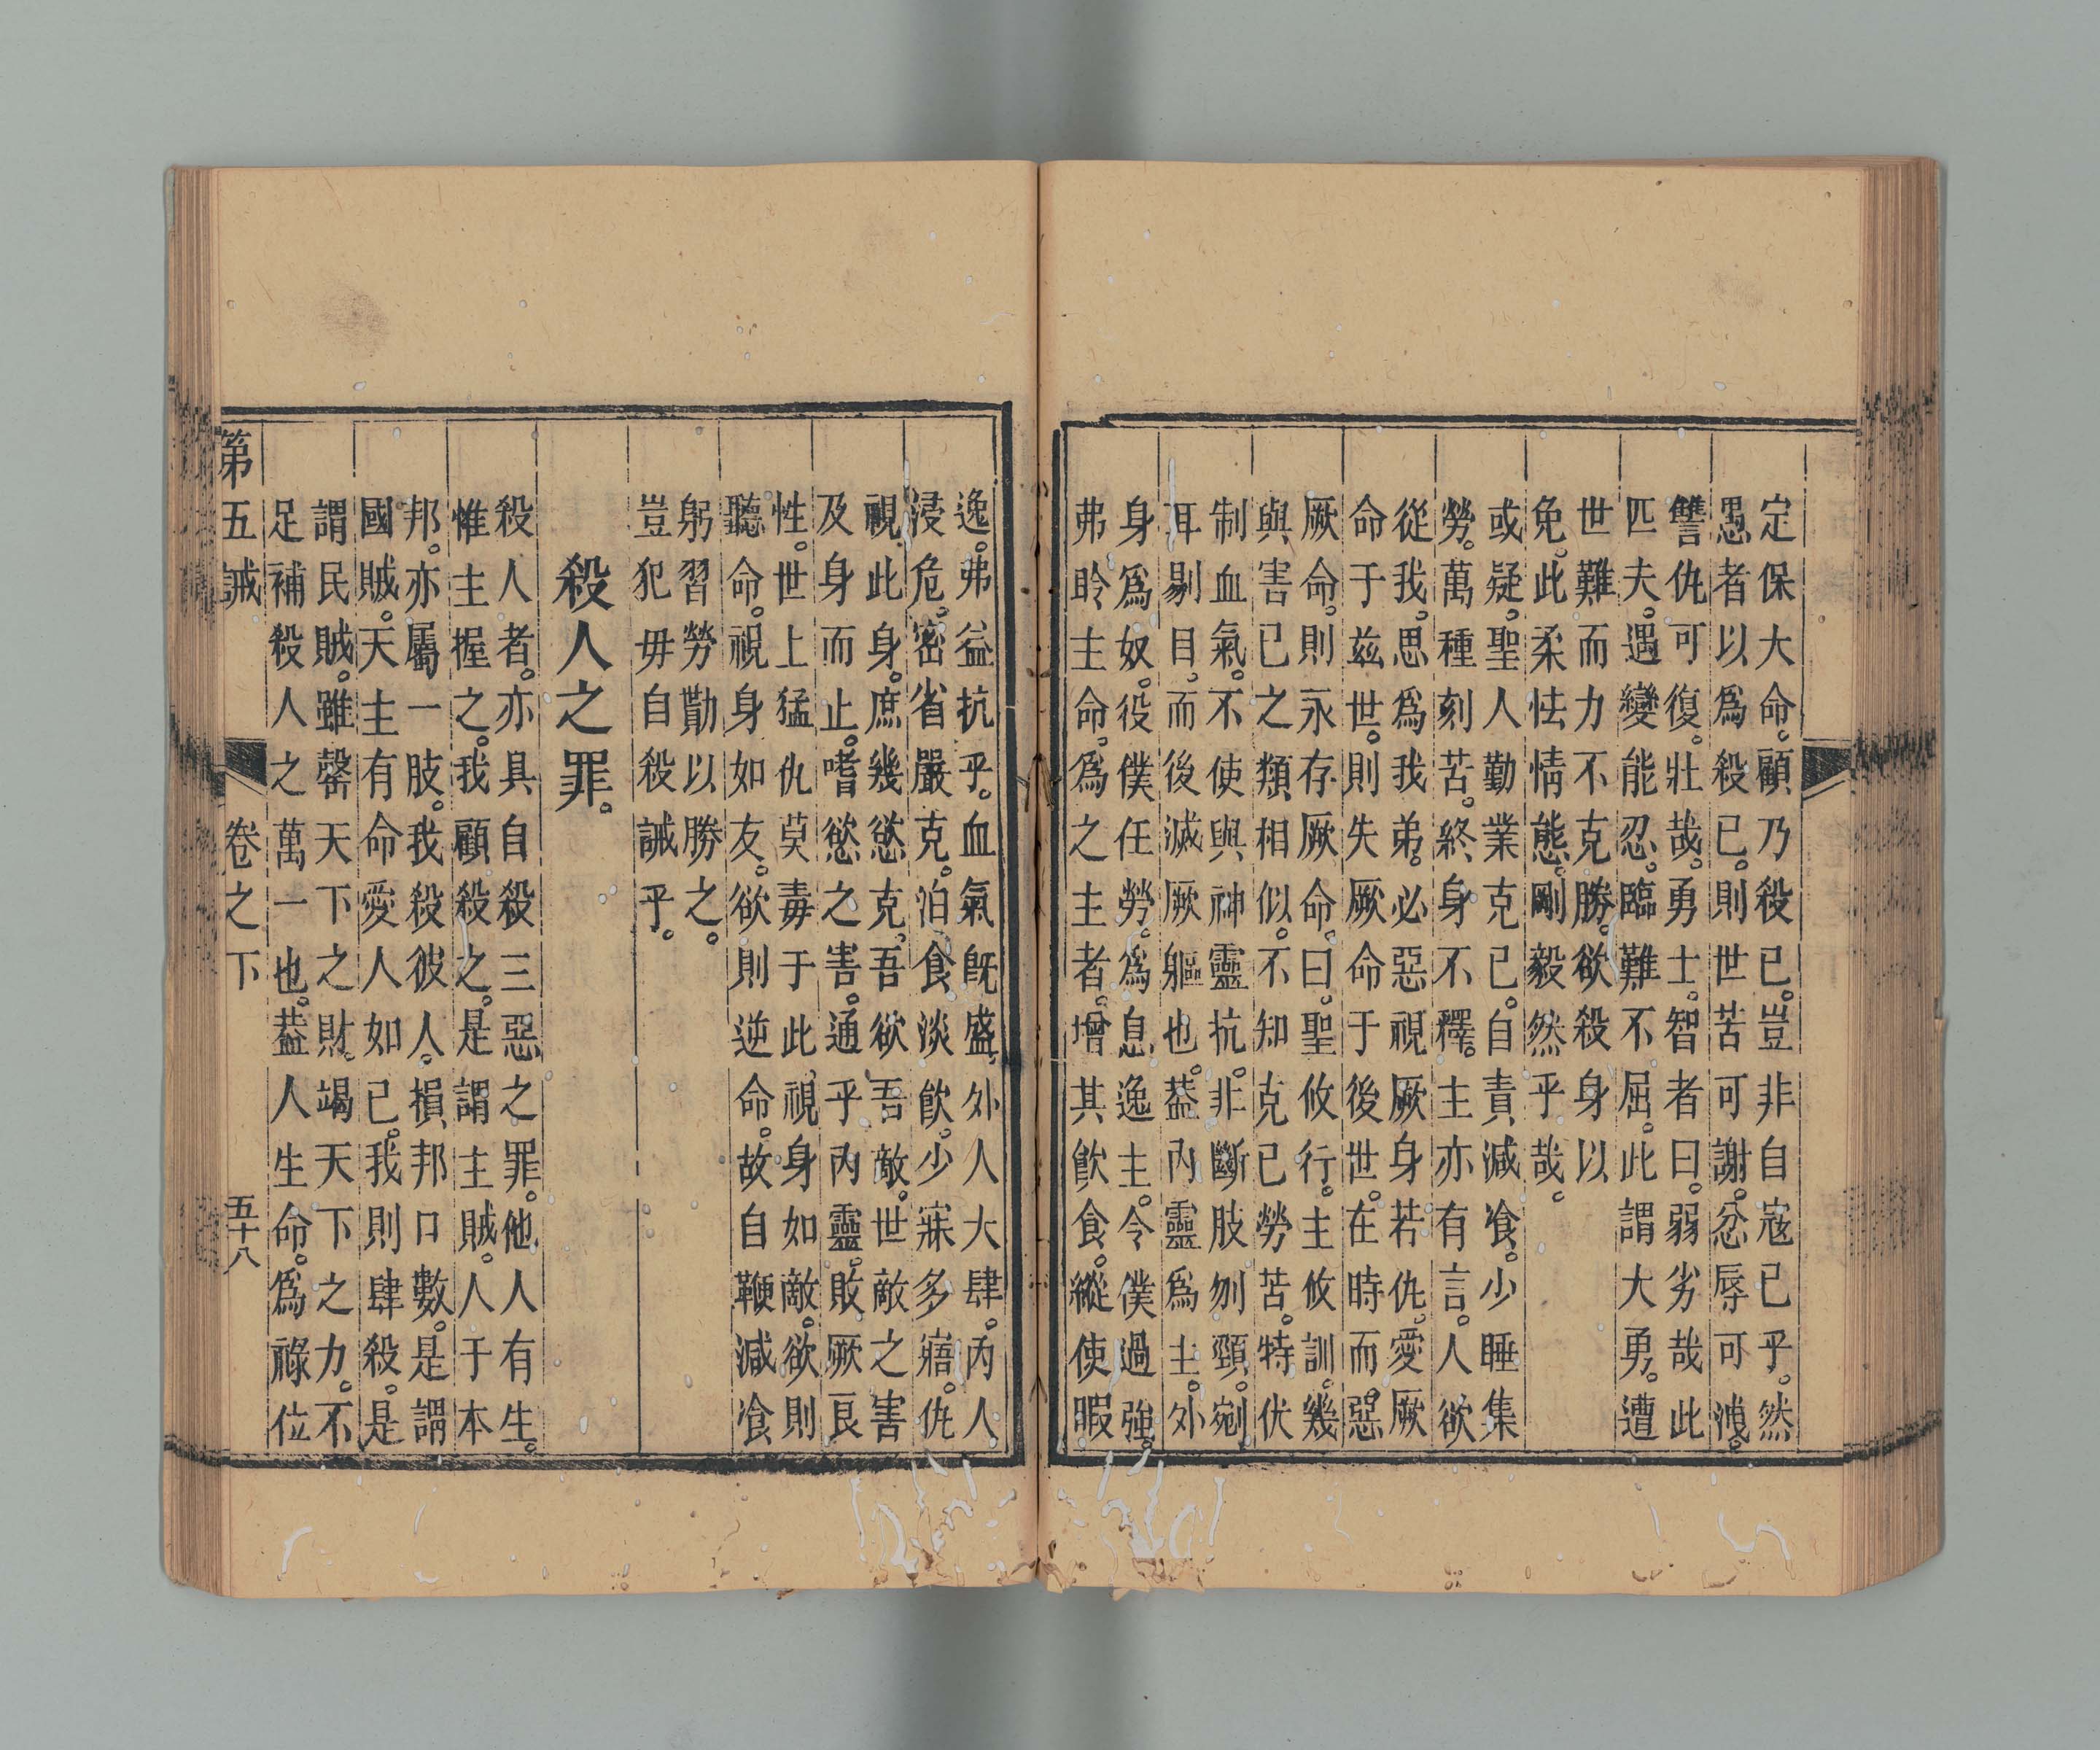 定保大命。顧乃殺已。豈非自寇已乎。然
愚者以爲殺已。則世苦可謝。忿辱可洩。
讐仇可復。壯哉。勇士。智者曰。弱劣哉此
匹夫。遇變能忍。臨難不屈。此謂大勇。遭
世難而力不克勝。欲殺身以
免。此柔怯情態。剛毅然乎哉。
或疑。聖人勤業克已。自責減飡。少睡集
勞。萬種刻苦。終身不釋。主亦有言。人欲
從我。思爲我弟。必惡視厥身若仇。愛厥
命于玆世。則失厥命于後世。在時而惡
厥命。則永存厥命。曰。聖攸行。主攸訓。幾
與害已之類相似。不知克已勞苦。特伏
制血氣。不使與神靈抗。非斷肢刎頸。剜
耳剔目。而後滅厥軀也。葢內靈爲主。外
身爲奴。役僕任勞。爲息逸主。令僕過強。
弗聆主命。爲之主者。增其飮食。縱使暇
逸。弗益抗乎。血氣旣盛。外人大肆。內人
浸危。密省嚴克。泊食淡飮。少寐多寤。仇
視此身。庶幾慾克。吾欲吾敵。世敵之害
及身而止。嗜慾之害。通乎內靈。敗厥良
性。世上猛仇莫毒于此視身如敵。欲則
聽命。視身如友。欲則逆命。故自鞭減飡
躬習勞勩以勝之。
豈犯毋自殺誡乎。
殺人之罪。
殺人者。亦具自殺三惡之罪。他人有生。
惟主握之。我顧殺之。是謂主賊。人于本
邦。亦屬一肢。我殺彼人。損邦口數。是謂
國賊。天主有命愛人如已。我則肆殺。是
謂民賊。雖罄天下之財。竭天下之力。不
足補殺人之萬一也。葢人生命。爲祿位
第五誡 卷之下 五十八